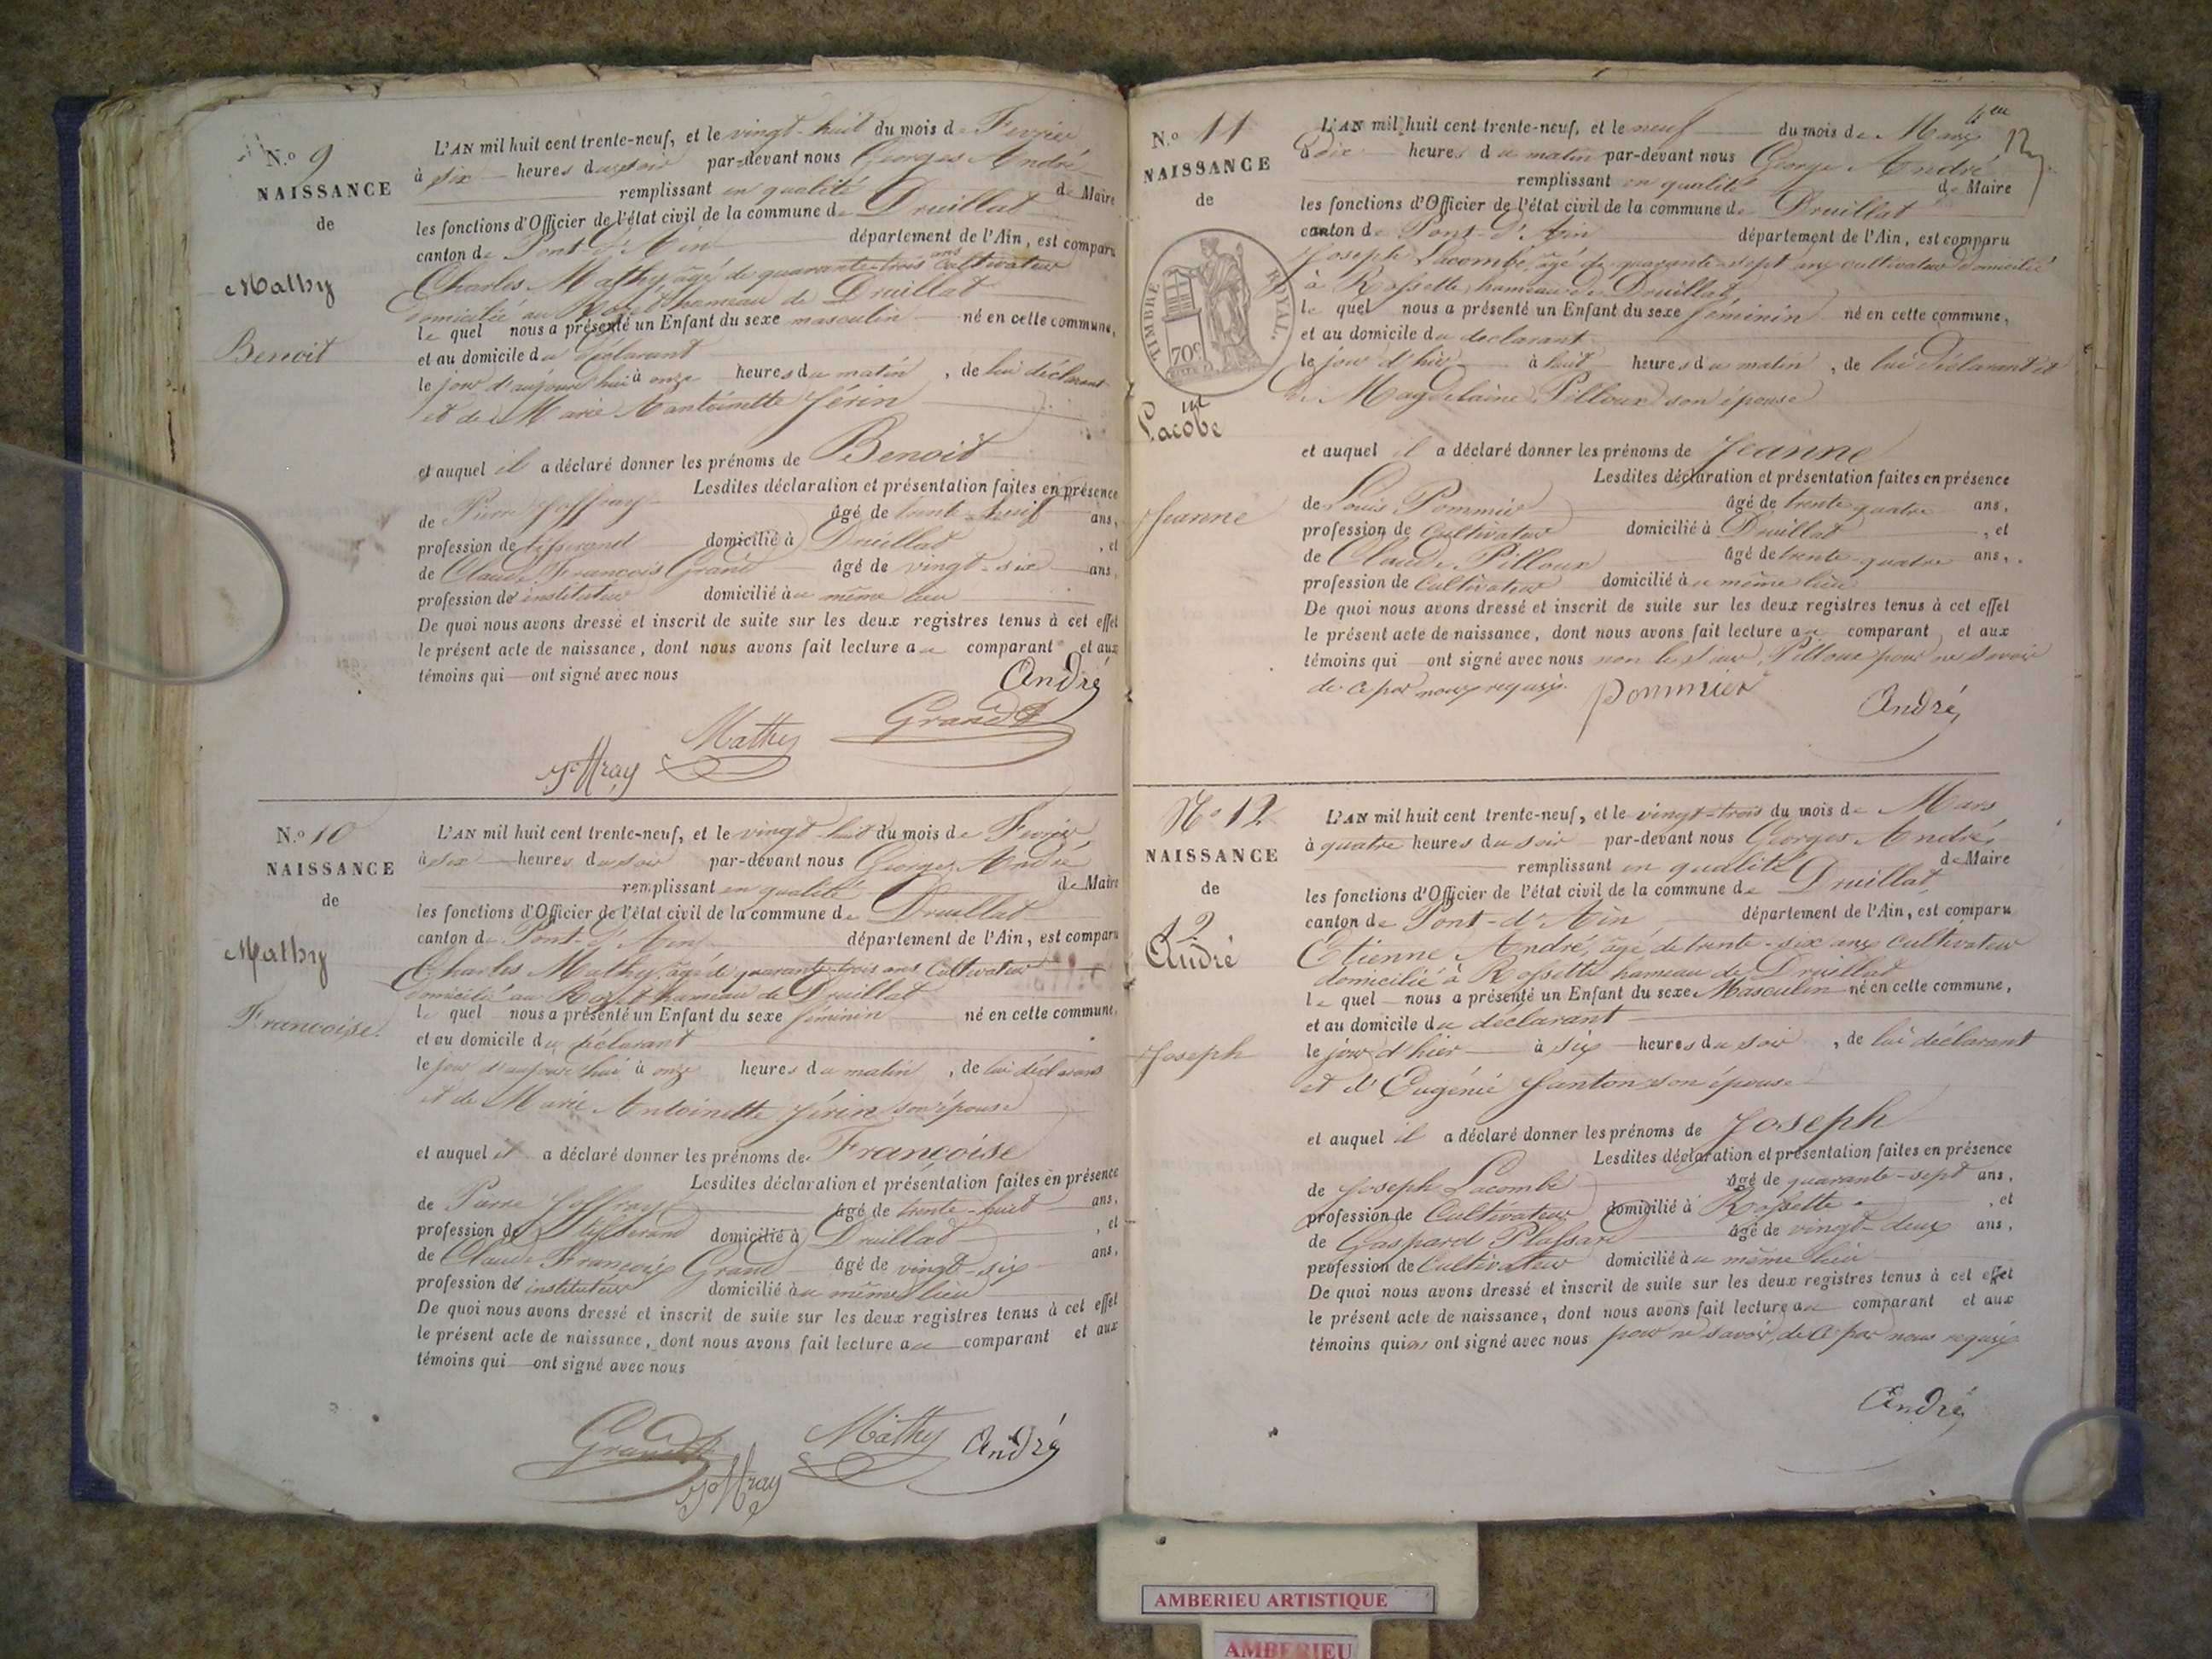 N.o 9
NAISSANCE
de
Mathy
Benoit
L'AN mil huit cent trente-neuf, et le vingt-huit du mois de Fevrier
à six heures du soir par-devant nous Georges André
remplissant en qualité de Maire
les fonctions d'Officier de l'état civil de la commune de Druillat
canton de Pont-d'Ain département de l'Ain, est comparu
Charles Mathy, âgé de quarante-trois ans cultivateur
domicilié au hameau de Druillat
le quel nous a présenté un Enfant du sexe masculin né en cette commune,
et au domicile du déclarant
le jour d'aujourd'hui à onze heures du matin, de lui déclarant
et de Marie Antoinette Férin
et auquel il a déclaré donner les prénoms de Benoit
Lesdites déclaration et présentation faites en présence
de Pierre Joffray âgé de trente-huit ans,
profession de tisserand domicilié à Druillat, et
de Claude François Grand âgé de vingt-six ans,
profession de instituteur domicilié au même lieu
De quoi nous avons dressé et inscrit de suite sur les deux registres tenus à cet effet
le présent acte de naissance, dont nous avons fait lecture au comparant et aux
témoins qui ont signé avec nous
André
Grand
Mathy
Joffray
N.o 10
NAISSANCE
de
Mathy
Francoise.
L'AN mil huit cent trente-neuf, et le vingt-huit du mois de Fevrier
à six heures du soir par-devant nous Georges André
remplissant en qualité de Maire
les fonctions d'Officier de l'état civil de la commune de Druillat
canton de Pont-d'Ain département de l'Ain, est comparu
Charles Mathy, âgé de quarante-trois ans Cultivateur
domicilié au hameau de Druillat
le quel nous a présenté un Enfant du sexe féminin né en cette commune,
et au domicile du déclarant
le jour d'aujourd'hui à onze heures du matin, de lui déclarant
et de Marie Antoinette Férin son épouse
et auquel il a déclaré donner les prénoms de Françoise
Lesdites déclaration et présentation faites en présence
de Pierre Joffray âgé de trente-huit ans,
profession de Tisserand domicilié à Druillat, et
de Claude François Grand âgé de vingt-six ans,
profession de instituteur domicilié au même lieu
De quoi nous avons dressé et inscrit de suite sur les deux registres tenus à cet effet
le présent acte de naissance, dont nous avons fait lecture au comparant et aux
témoins qui ont signé avec nous
Grand
Joffray
Mathy
André
N.o 11
NAISSANCE
de
TIMBRE ROYAL.
70c
Lacombe
Jeanne
L'AN mil huit cent trente-neuf, et le neuf du mois de Mars
à dix heures du matin par-devant nous George André
remplissant en qualité de Maire
les fonctions d'Officier de l'état civil de la commune de Druillat
canton de Pont-d'Ain département de l'Ain, est comparu
Joseph Lacombe, âgé de quarante-sept ans cultivateur domicilié
à Rossette hameau de Druillat
le quel nous a présenté un Enfant du sexe féminin né en cette commune,
et au domicile du declarant
le jour d'hier à huit heures du matin, de lui déclarant et
de Magdelaine Pilloux son épouse
et auquel il a déclaré donner les prénoms de Jeanne
Lesdites déclaration et présentation faites en présence
de Louis Pommier âgé de trente quatre ans,
profession de Cultivateur domicilié à Druillat, et
de Claude Pilloux âgé de trente-quatre ans,
profession de Cultivateur domicilié au même lieu
De quoi nous avons dressé et inscrit de suite sur les deux registres tenus à cet effet
le présent acte de naissance, dont nous avons fait lecture au comparant, et aux
témoins qui ont signé avec nous non le sieur Pilloux pour ne savoir
de ce par nous requis.
Pommier
André
No 12
NAISSANCE
de
12
André
Joseph
L'AN mil huit cent trente-neuf, et le vingt-trois du mois de Mars
à quatre heures du soir par-devant nous Georges André,
remplissant en qualité de Maire
les fonctions d'Officier de l'état civil de la commune de Druillat
canton de Pont-d'Ain département de l'Ain, est comparu
Etienne André, âgé de trente-six ans Cultivateur
domicilié à Rossette hameau de Druillat
le quel nous a présenté un Enfant du sexe Masculin né en cette commune,
et au domicile du déclarant
le jour d'hier à six heures du soir, de lui déclarant
et d'Eugénie Janton son épouse
et auquel il a déclaré donner les prénoms de Joseph
Lesdites déclaration et présentation faites en présence
de Joseph Lacombe âgé de quarante-sept ans,
profession de Cultivateur domicilié à Rossette, et
de Gaspard Plassard âgé de vingt-deux ans,
profession de Cultivateur domicilié au même lieu
De quoi nous avons dressé et inscrit de suite sur les deux registres tenus à cet effet
le présent acte de naissance, dont nous avons fait lecture au comparant et aux
témoins qui ont signé avec nous pour ne savoir, de ce par nous requis
André
AMBERIEU ARTISTIQUE
AMBERIEU